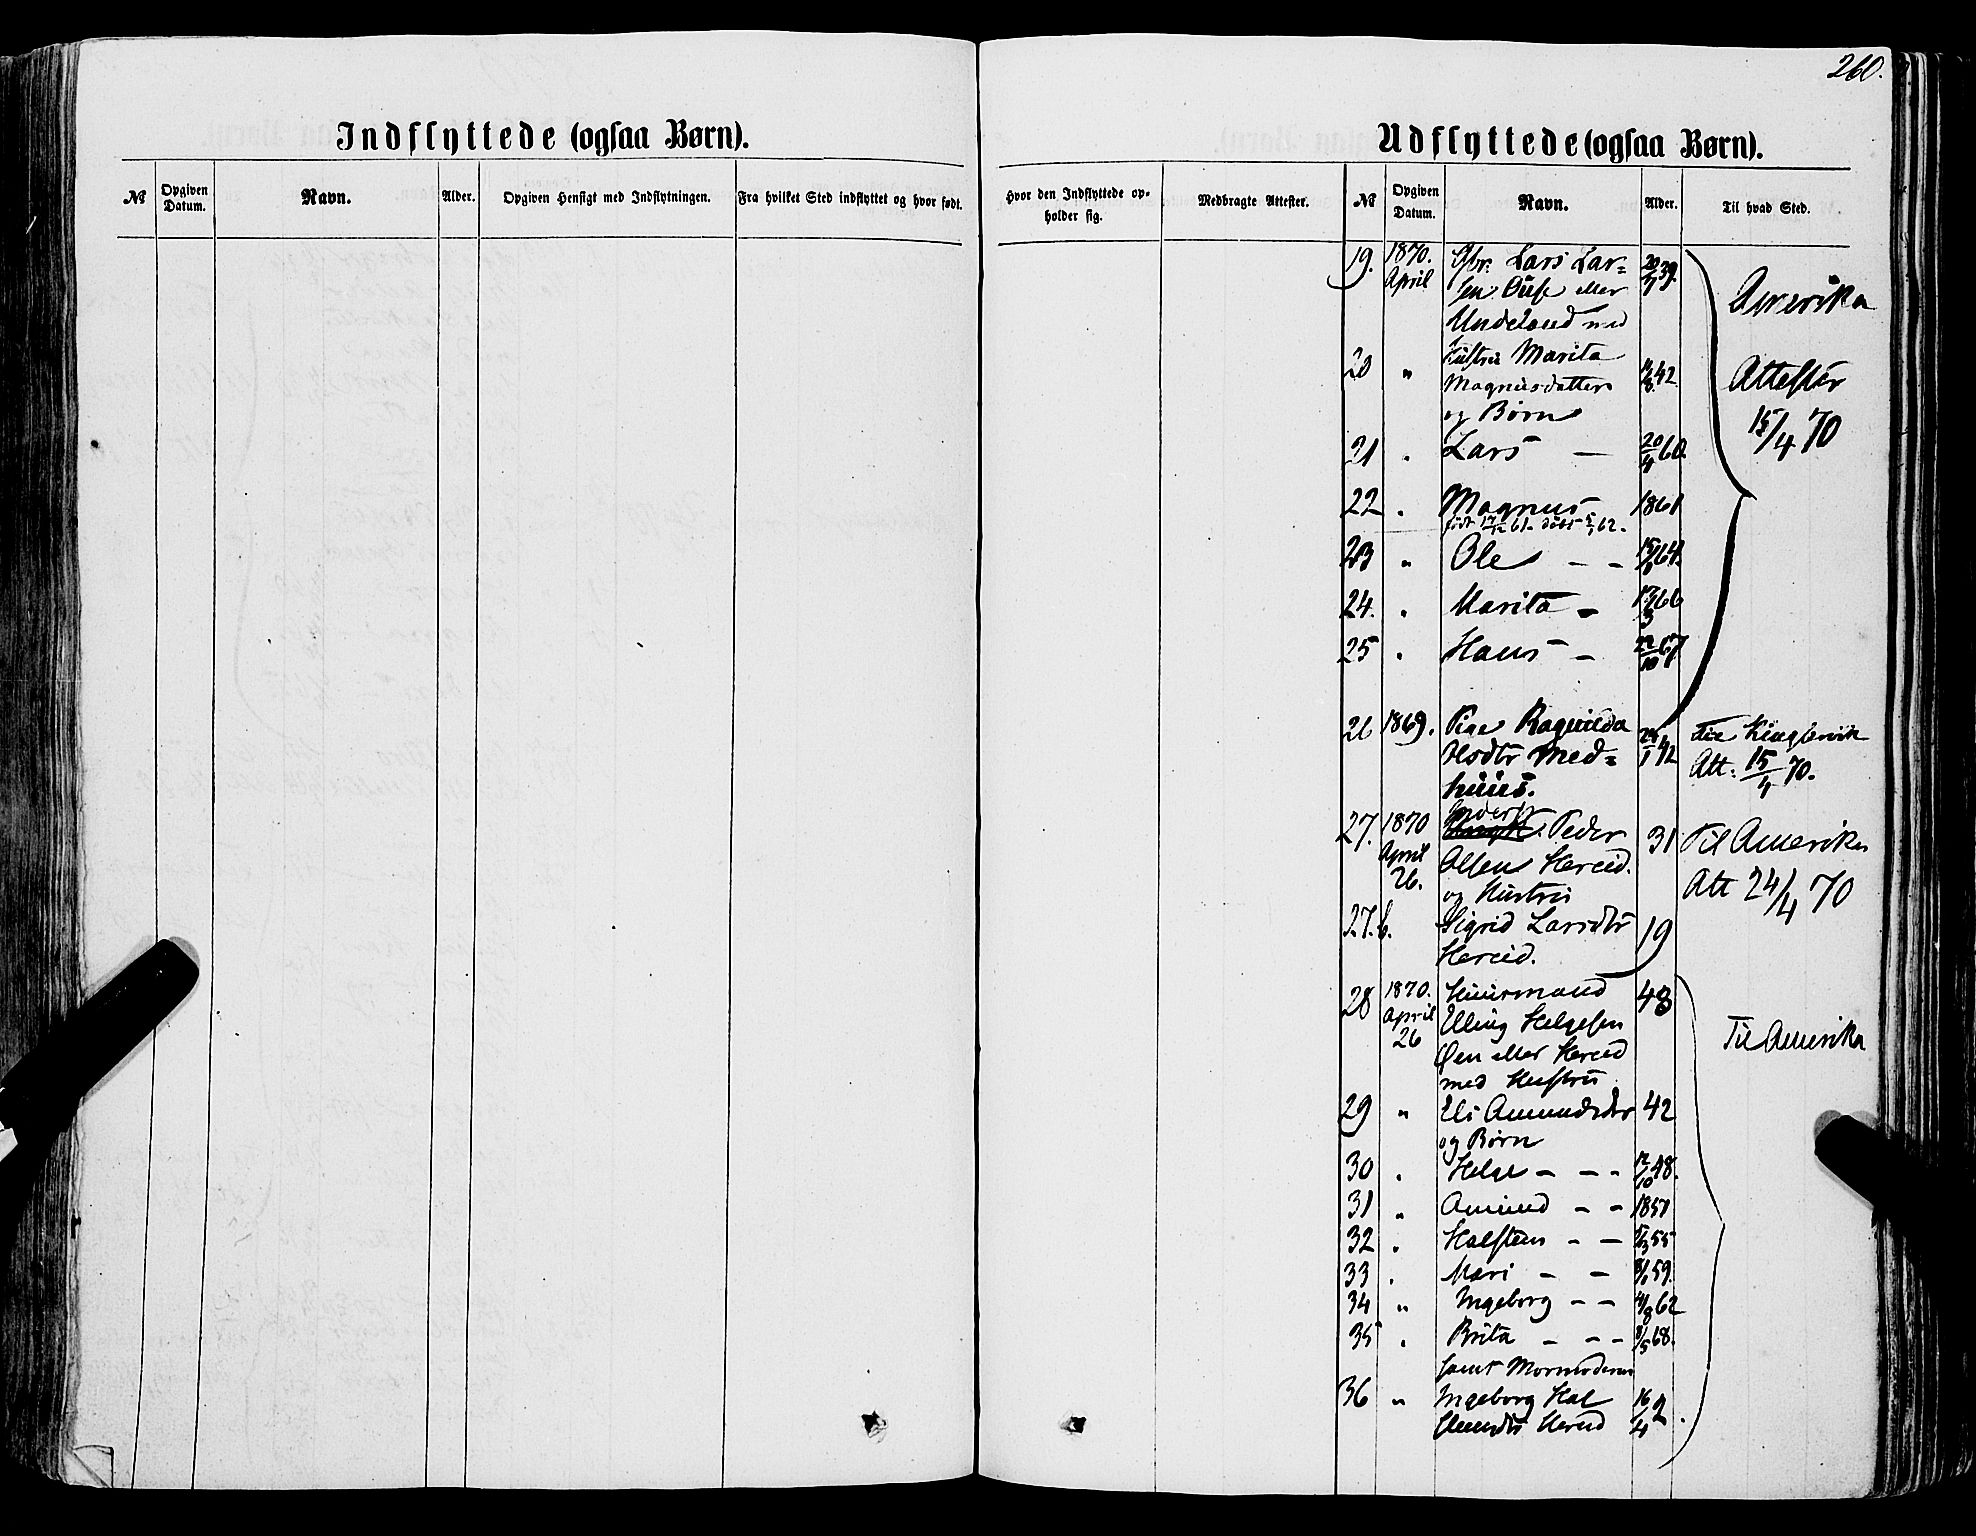 260.
Indflyttede (ogsaa Børn).
№ Opgiven Datum. Navn. Alder. Opgiven Hensigt med Indflytningen. Fra hvilket Sted indflyttet og hvor født.
Hvor den Indflyttede opholder sig. Medbragte Attester.
Udflyttede (ogsaa Børn).
№ Opgiven Datum. Navn. Alder. Til hvad Sted.
19. 1870. April Lars Lar= 20/7 39.
sen eller
Undeland med
Amerika
Hustru Marita
20 " Magnusdatter 42
og Børn
Attester
15/4 70
21 " Lars — 20/4 60.
22 " Magnus 1861
født 17/12 61. død 62.
23 " Ole — — 64.
24. " Marita — 17/3 66
25 " Hans — 22/10 67
26 1869. Pige Ragnilda 42
Olsdtr Med=
huus.
Att: 15/4 70.
27. 1870 April 26. Peder 31 Til Amerika
Olsen Hereid.
og Hustru
Att 24/4 70
27.b. Sigrid Larsdtr 19
Hereid.
28 1870. April 26 Huusmand 48
Elling Helgesen
Øen eller Hereid
med Hustru
Til Amerika
29 " Eli Amundsdtr 42
og Børn
30 " Helge — — — 12/10 48.
31 " Amund — — 1851
32 " Halsten — — 55
33 " Mari — — 59.
34 " Ingeborg — — 4/8 62
35 " Brita — — — 68.
samt Mormoderen
36 " Ingeborg Hal 16/4 2.
Hereid